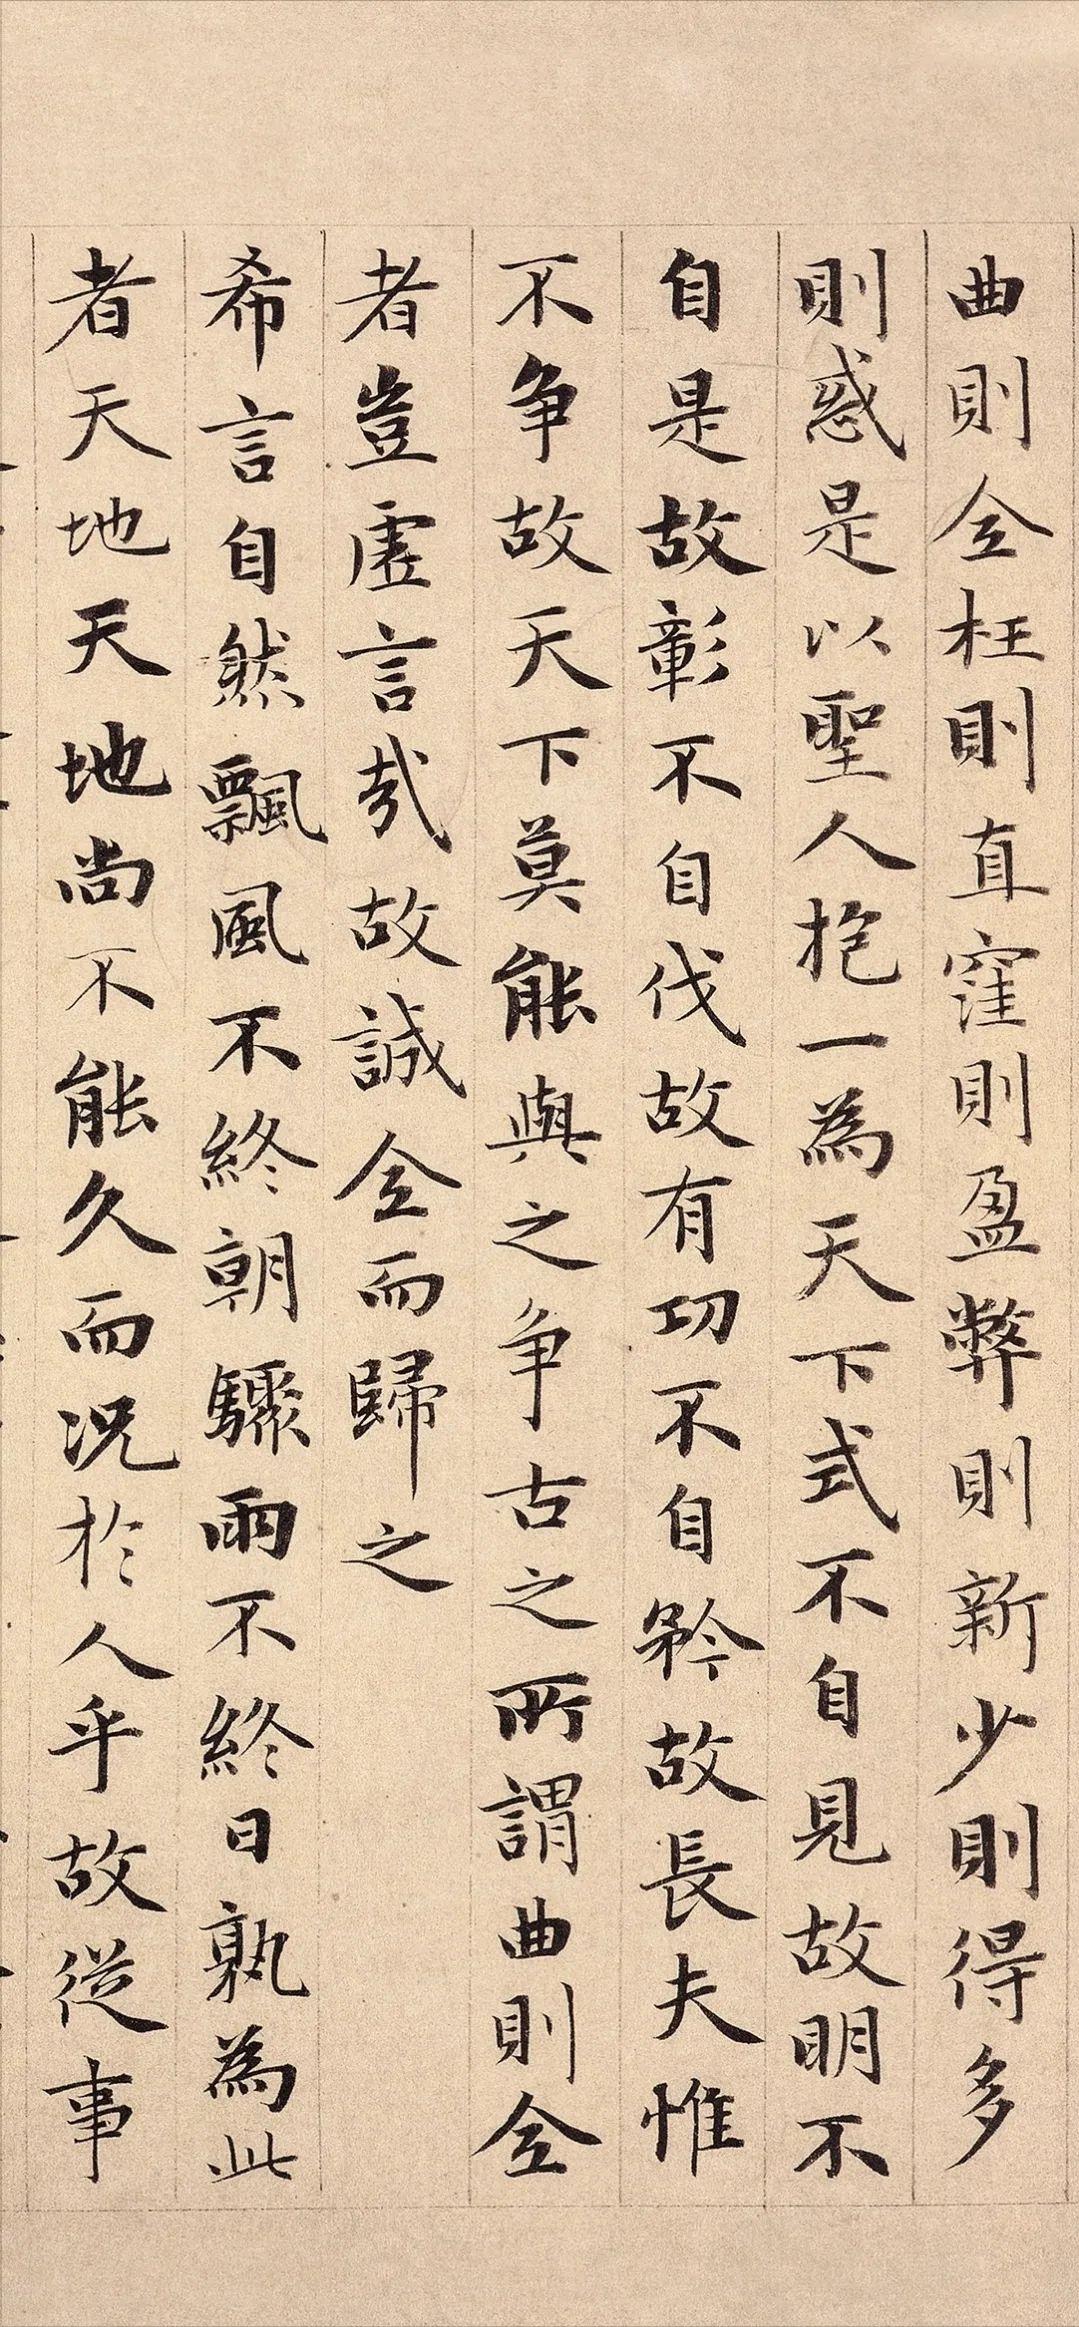 曲則全枉則直窪則盈弊則新少則得多
則惑是以聖人抱一為天下式不自見故明不
自是故彰不自伐故有功不自矜故長夫惟
不争故天下莫能與之争古之所謂曲則全
者豈虛言哉故誠全而歸之
希言自然飄風不終朝驟雨不終日孰為此
者天地天地尚不能久而況於人乎故從事